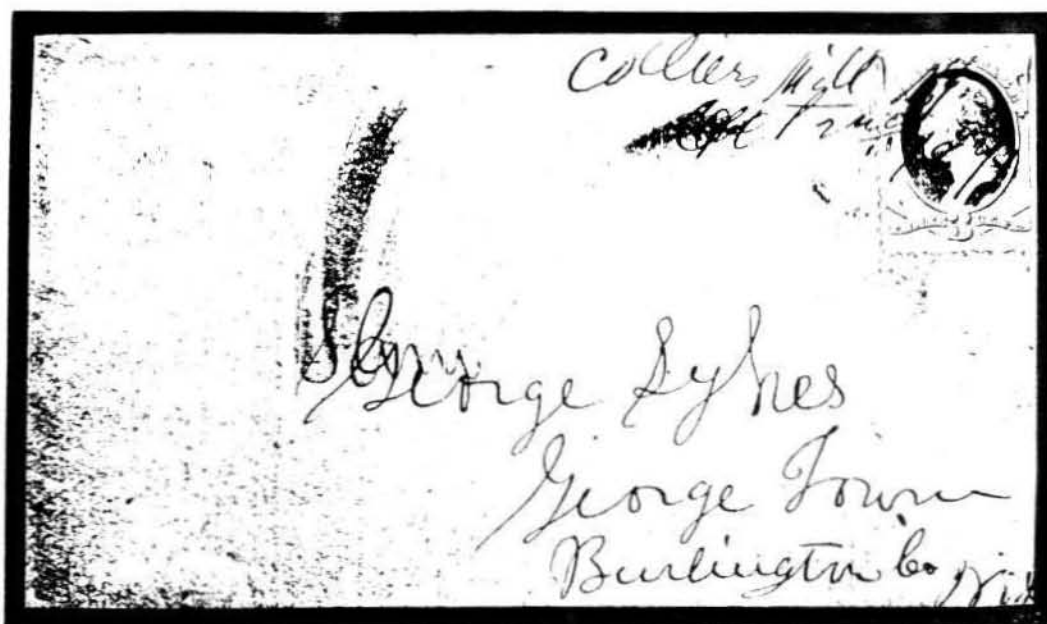 Colliers Mills
George Sykes
George Town
Burlington Co N.J.